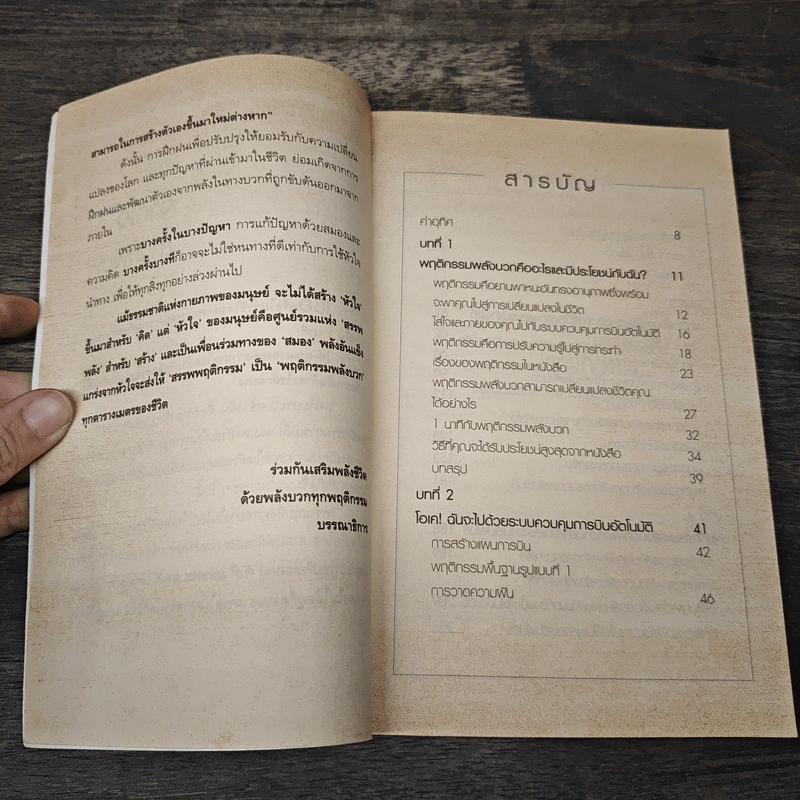 สามารถในการสร้างตัวเองขึ้นมาใหม่ต่างหาก"
ดังนั้น การฝึกฝนเพื่อปรับปรุงให้ยอมรับกับความเปลี่ยน
แปลงของโลก และทุกปัญหาที่ผ่านเข้ามาในชีวิต ย่อมเกิดจากการ
ฝึกฝนและพัฒนาตัวเองจากพลังในทางบวกที่ถูกขับดันออกมาจาก
ภายใน
เพราะบางครั้งในบางปัญหา การแก้ปัญหาด้วยสมองและ
ความคิด บางครั้งบางทีก็อาจจะไม่ใช่หนทางที่ดีเท่ากับการใช้หัวใจ
นำทาง เพื่อให้ทุกสิ่งทุกอย่างล่วงผ่านไป
แม้ธรรมชาติแห่งกายภาพของมนุษย์ จะไม่ได้สร้าง 'หัวใจ'
ขึ้นมาสำหรับ 'คิด' แต่ 'หัวใจ' ของมนุษย์คือศูนย์รวมแห่ง 'สรรพ
พลัง' สำหรับ 'สร้าง' และเป็นเพื่อนร่วมทางของ 'สมอง' พลังอันแข็ง
แกร่งจากหัวใจจะส่งให้ 'สรรพพฤติกรรม' เป็น 'พฤติกรรมพลังบวก'
ทุกตารางเมตรของชีวิต
ร่วมกันเสริมพลังชีวิต
ด้วยพลังบวกทุกพฤติกรรม
บรรณาธิการ
สารบัญ
คำอุทิศ 8
บทที่ 1
พฤติกรรมพลังบวกคืออะไรและมีประโยชน์กับฉัน? 11
พฤติกรรมคือยานพาหนะอันทรงอานุภาพซึ่งพร้อม
จะพาคุณไปสู่การเปลี่ยนแปลงในชีวิต 12
ใส่ใจและกายของคุณไปกับระบบควบคุมการบินอัตโนมัติ 16
พฤติกรรมคือการปรับความรู้ไปสู่การกระทำ 18
เรื่องของพฤติกรรมในหนังสือ 23
พฤติกรรมพลังบวกสามารถเปลี่ยนแปลงชีวิตคุณ
ได้อย่างไร 27
1 นาทีกับพฤติกรรมพลังบวก 32
วิธีที่คุณจะได้รับประโยชน์สูงสุดจากหนังสือ 34
บทสรุป 39
บทที่ 2
โอเค! ฉันจะไปด้วยระบบควบคุมการบินอัตโนมัติ 41
การสร้างแผนการบิน 42
พฤติกรรมพื้นฐานรูปแบบที่ 1
การวาดความฝัน 46